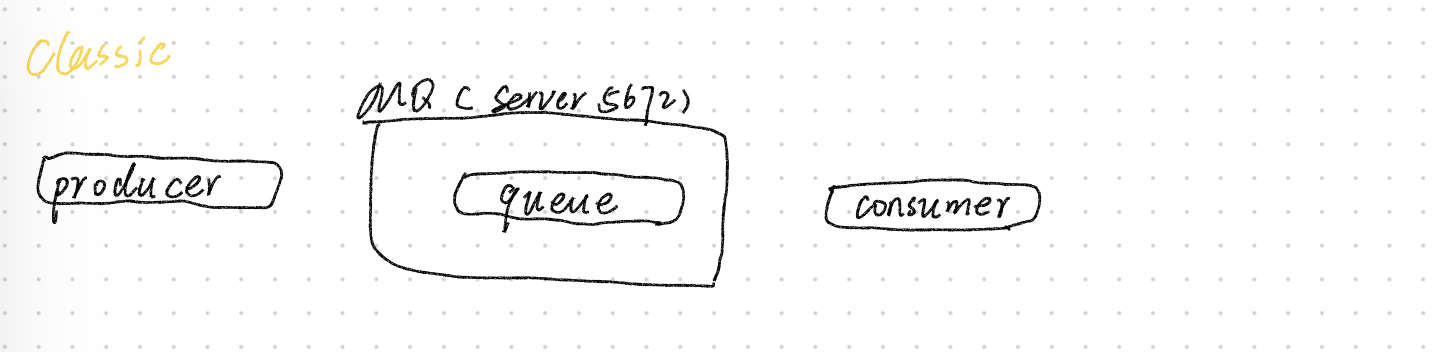 Classic
MQ ( server 5672)
producer
queue
consumer